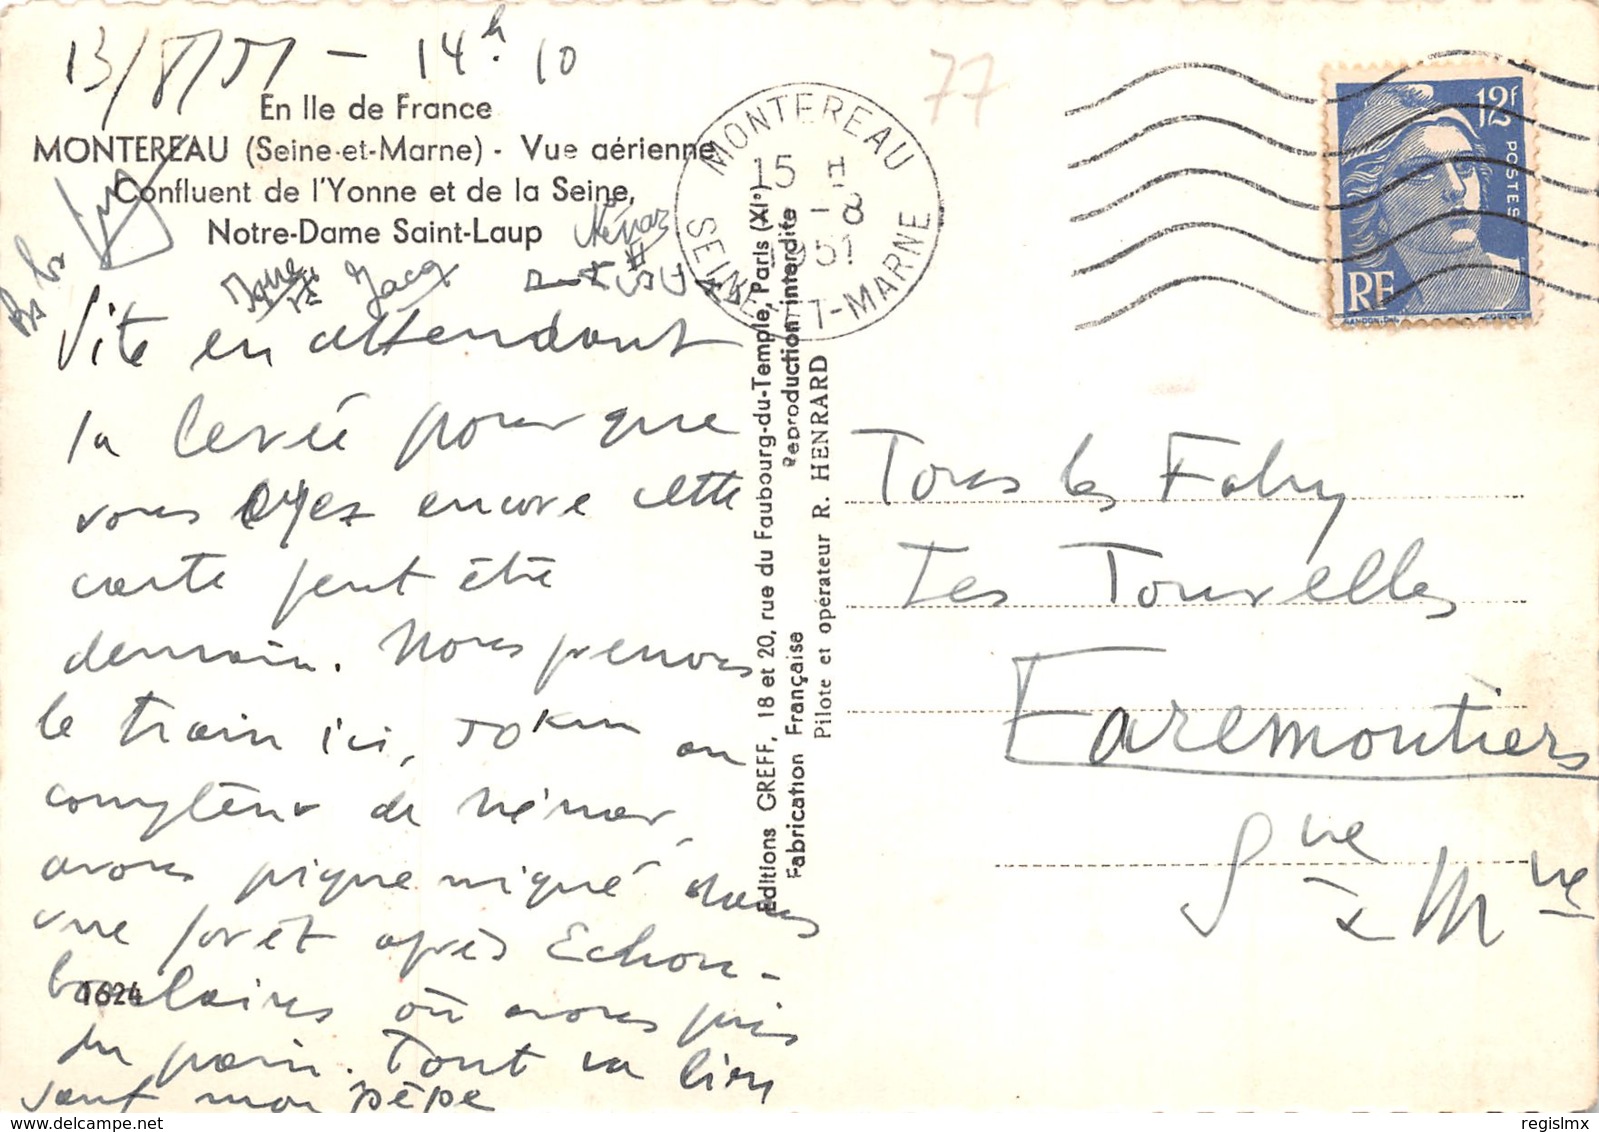 13/8/51 - 14h. 10
En Ile de France
MONTEREAU (Seine-et-Marne) - Vue aérienne
Confluent de l'Yonne et de la Seine,
Notre-Dame Saint-Laup
Jacq
Vite en attendant
la levée pour que
vous ayez encore cette
carte peut être
demain. Nous prenons
le train ici, 50 km au
compteur de
avons pique niqué dans
une forêt après Echou-
boulains où avons pris
du pain. Tout va bien
sauf mon pépé
1624
Editions GREFF, 18 et 20, rue du Faubourg-du-Temple, Paris (XIe)
Fabrication Française Reproduction interdite
Pilote et opérateur R. HENRARD
77
MONTEREAU
15 H
-8
1951
SEINE-ET-MARNE
12f
POSTES
RF
GANDON
Tous les Fabry
Les Tourelles
Faremoutiers
Sne x Mne
regislmx